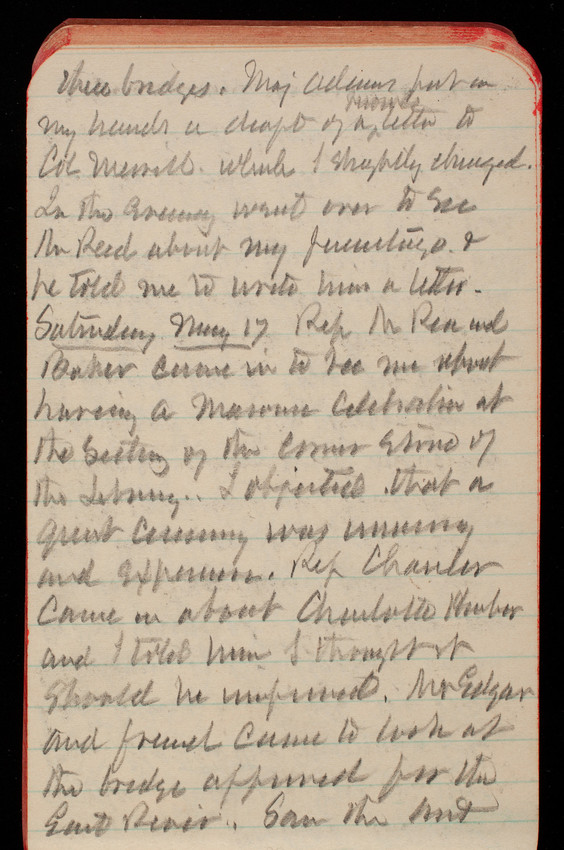 three bridges. Maj Adams put in
my hands a draft of a letter to
Col Merrill. which I slightly changed.
In the evening went over to see
Mr Reed about my & 
he told me to write him a letter.
Saturday May 17 Rep McRea and
Baker came in to see me about
having a Masonic Celebration at
the Setting of the Corner Stone of
the Library.. I objected that a
great Ceremony was
and expensive. Rep Chanler
Came in about Charlotte Harbor
and I told him I thought it
Should be improved. Mr Edgar
and friend came to look at
the bridge approved for the
East River. Saw the